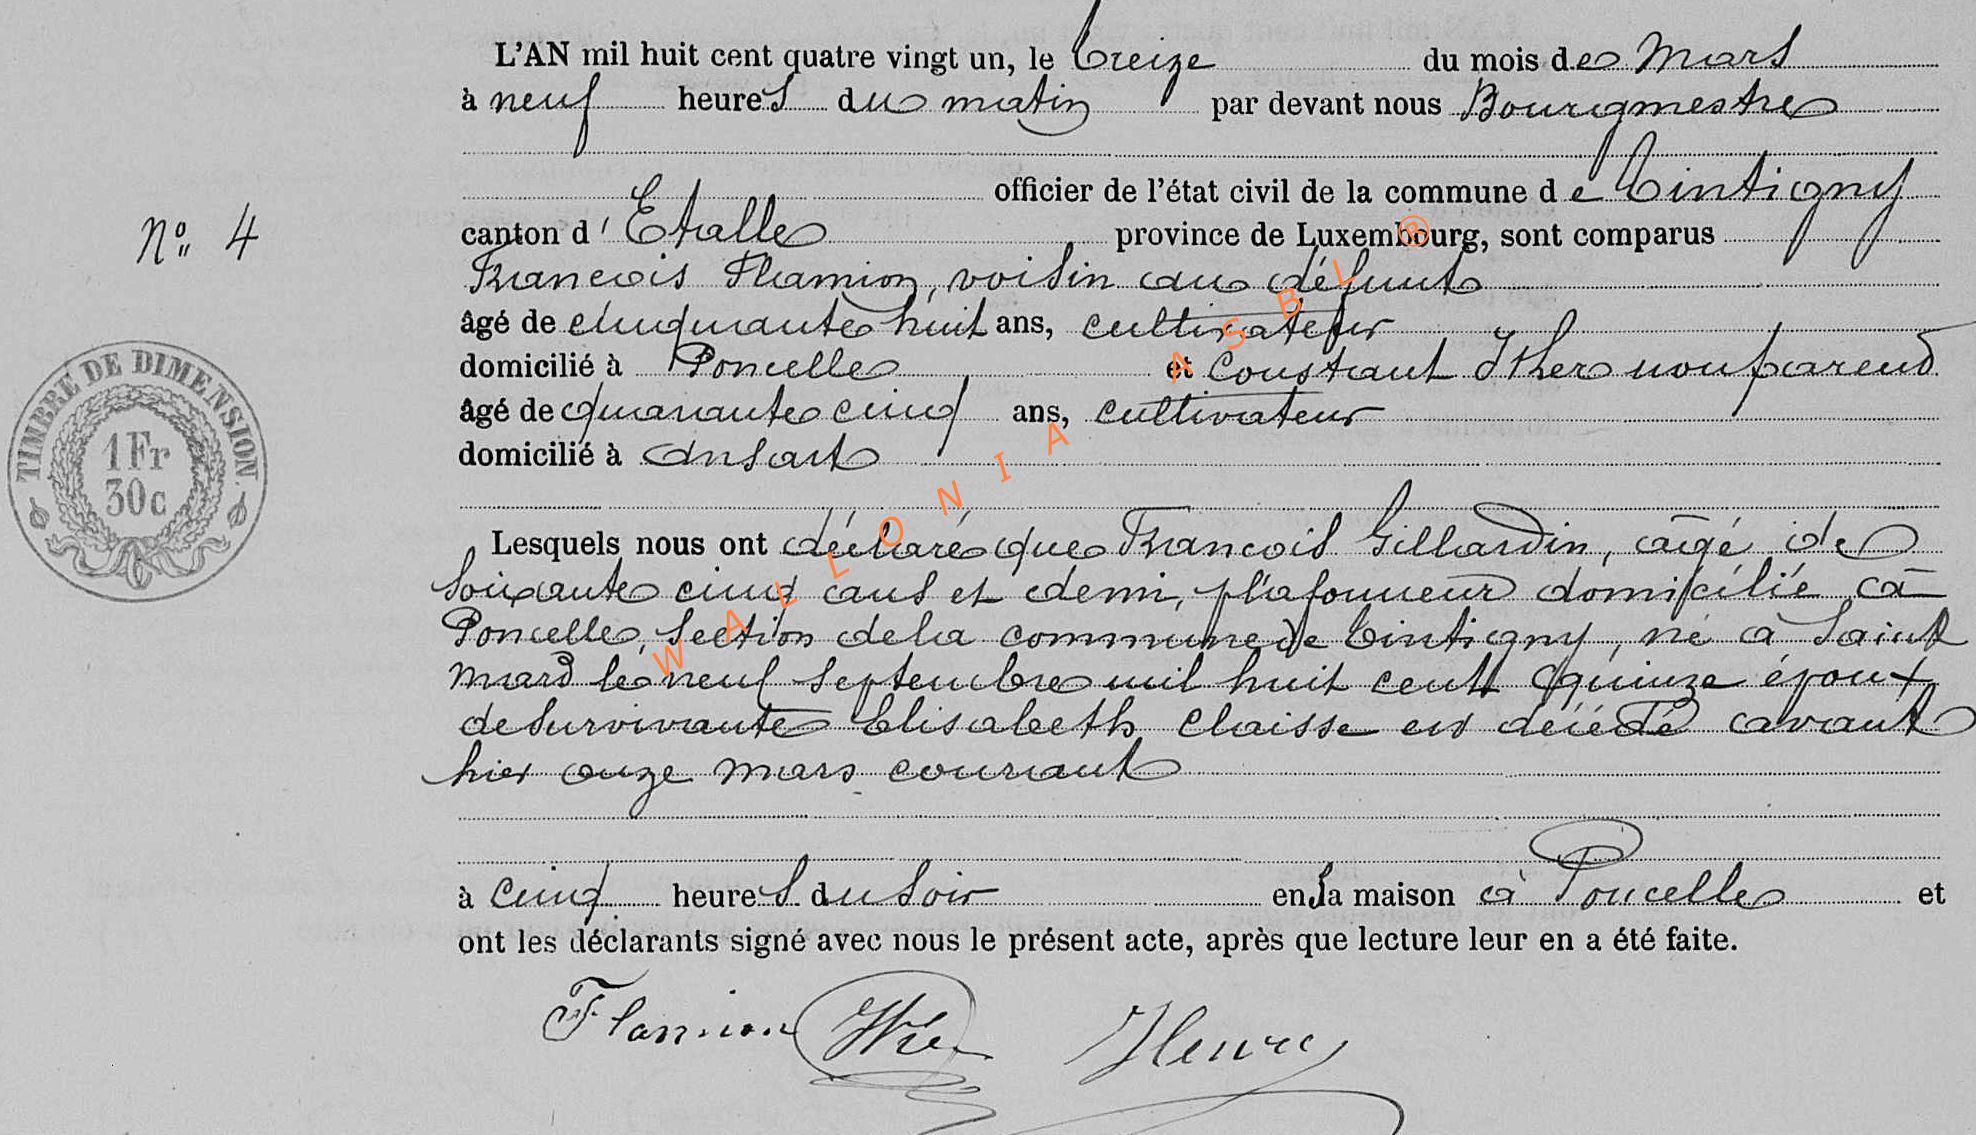 L'AN mil huit cent quatre vingt un, le treize du mois de Mars
à neuf heures du matin par devant nous Bourgmestre
officier de l'état civil de la commune de Tintigny
N° 4
canton d'Etalle province de Luxembourg, sont comparus
Francois Flamion, voisin au défunt
âgé de cinquante huit ans, cultivateur
domicilié à Poncelle et Constant Ither non parend
âgé de quarante cinq ans, cultivateur
domicilié à ansart
TIMBRE DE DIMENSION.
1 Fr
30c
Lesquels nous ont déclaré que Francois Gillardin, agé de
soixante cinq ans et demi, plafonneur domicilié à
Poncelle, section de la commune de Tintigny, né à Saint
mard le neuf septembre mil huit cent quinze époux
de survivante Elisabeth Claisse est décédé avant
hier onze mars courant
à cinq heures du soir en sa maison à Poncelle et
ont les déclarants signé avec nous le présent acte, après que lecture leur en a été faite.
Flamion Henry
WALLONIA ASBL ®